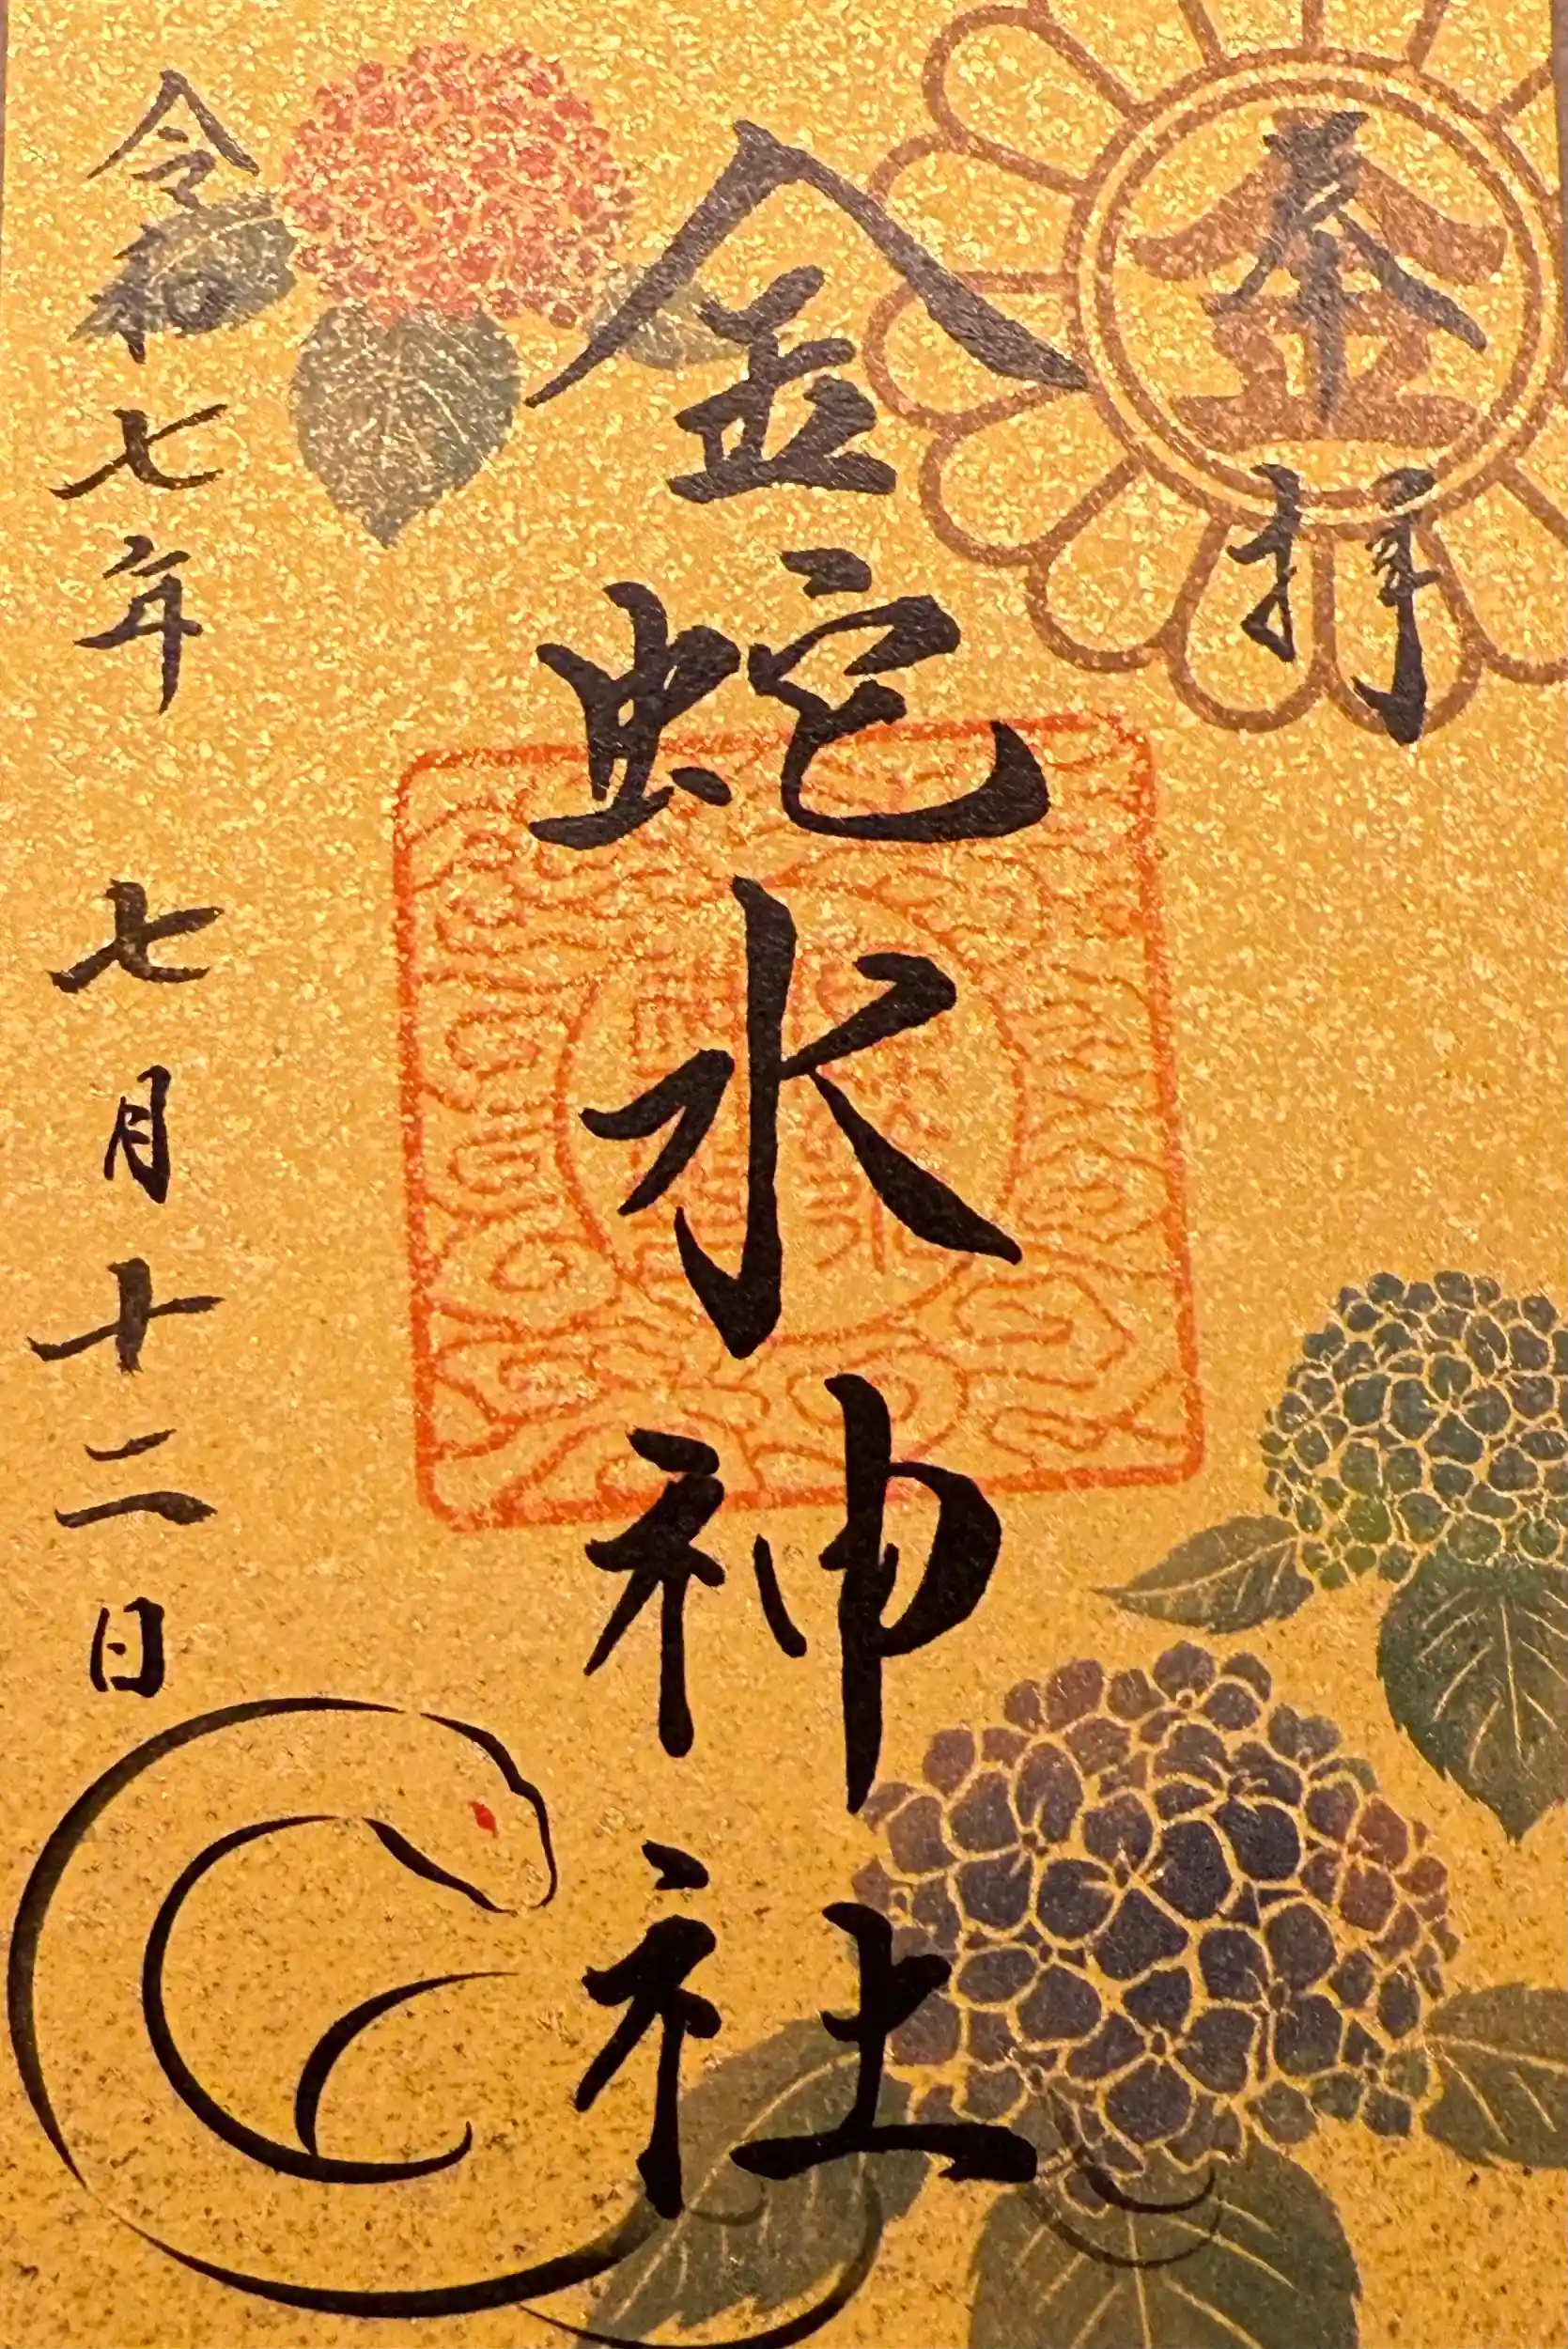 奉拝
金
金蛇水神社
令和七年 七月十二日